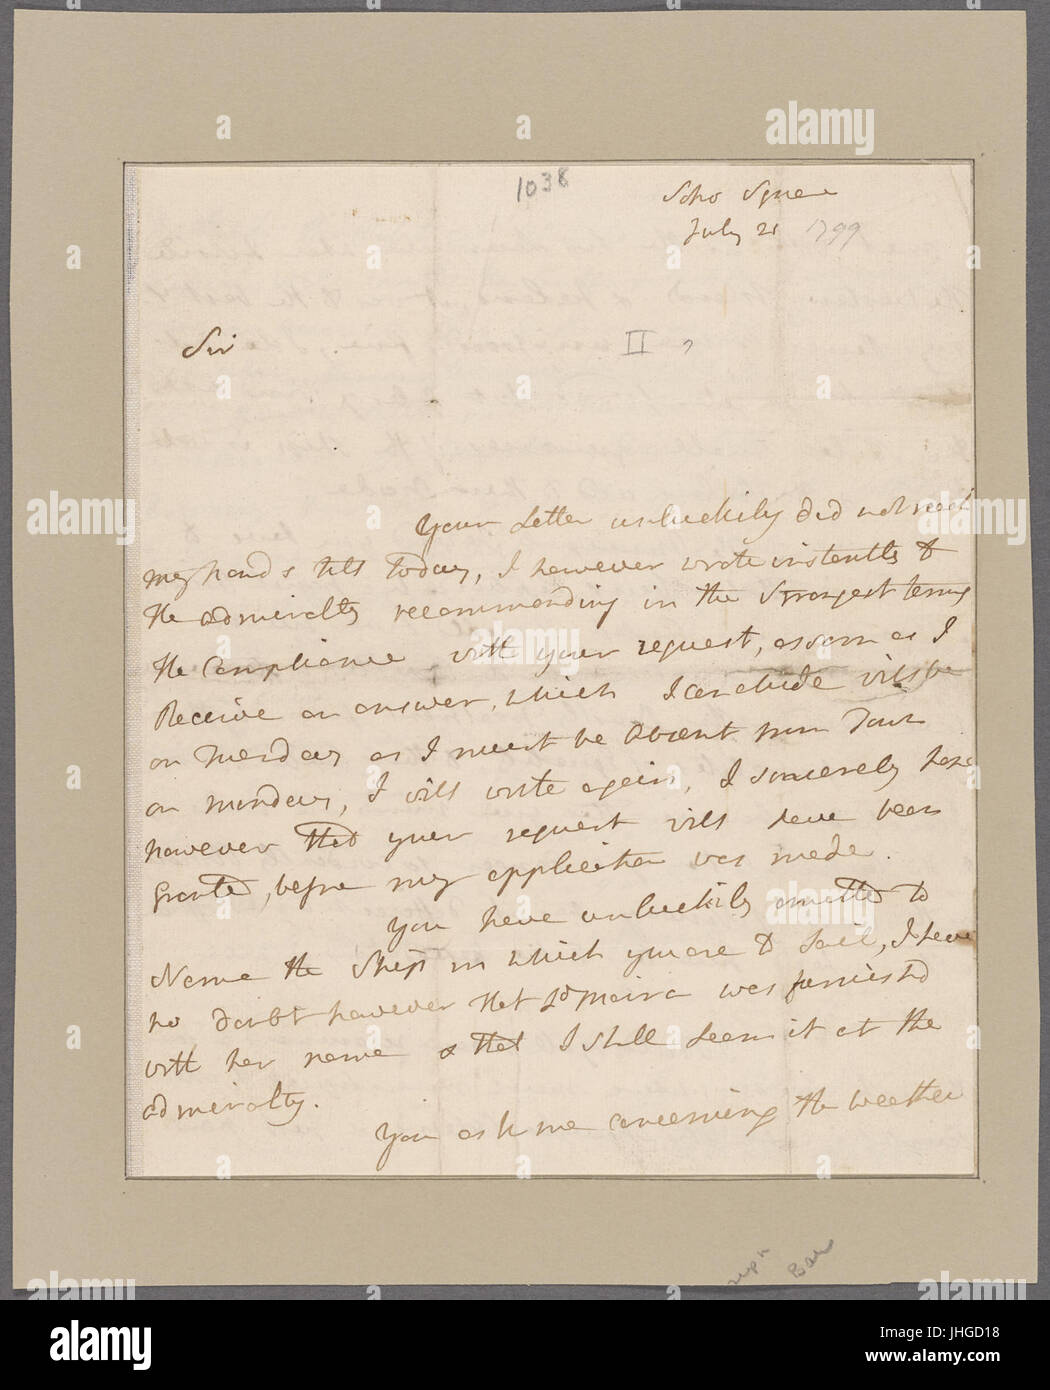 1038
Soho Square
July 21 1799
II ?
Sir
Your Letter unluckily did not reach
my hands till today, I however wrote instantly to
the admiralty recommending in the Strongest terms
the Compliance with your request, as soon as I
Receive an answer, which I conclude will be
on Monday as I must be Absent from Town
on Monday, I will write again, I sincerely hope
however that your request will have been
Granted, before my application was made.
You have unluckily omitted to
Name the Ship in which you are to Sail, I have
no doubt however that Ld Moira was furnishd
with her name & that I shall Learn it at the
admiralty.
You ask me concerning the weather
alamy
Image ID: JHGD18
www.alamy.com